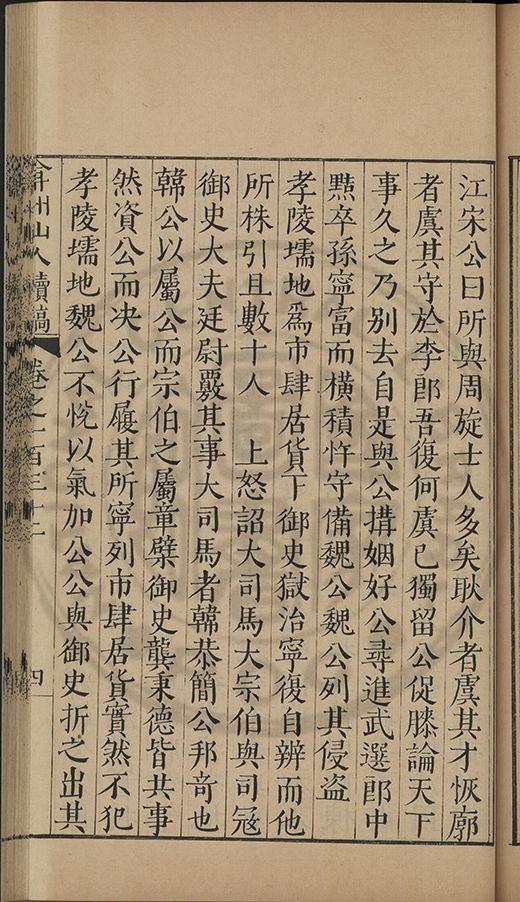 江宋公曰所與周旋士人多矣耿介者虞其才恢廓
者虞其守於李郎吾復何虞已獨留公促膝論天下
事久之乃別去自是與公搆姻好公尋進武選郎中
黠卒孫寧富而橫積忤守備魏公魏公列其侵盜
孝陵壖地爲市肆居貨下御史獄治寧復自辨而他
所株引且數十人 上怒詔大司馬大宗伯與司冦
御史大夫廷尉覈其事大司馬者韓恭簡公邦竒也
韓公以屬公而宗伯之屬童檗御史龔秉德皆共事
然資公而决公行履其所寧列市肆居貨實然不犯
孝陵壖地魏公不悅以氣加公公與御史折之出其
弇州山人續稿 卷之一百三十二 四